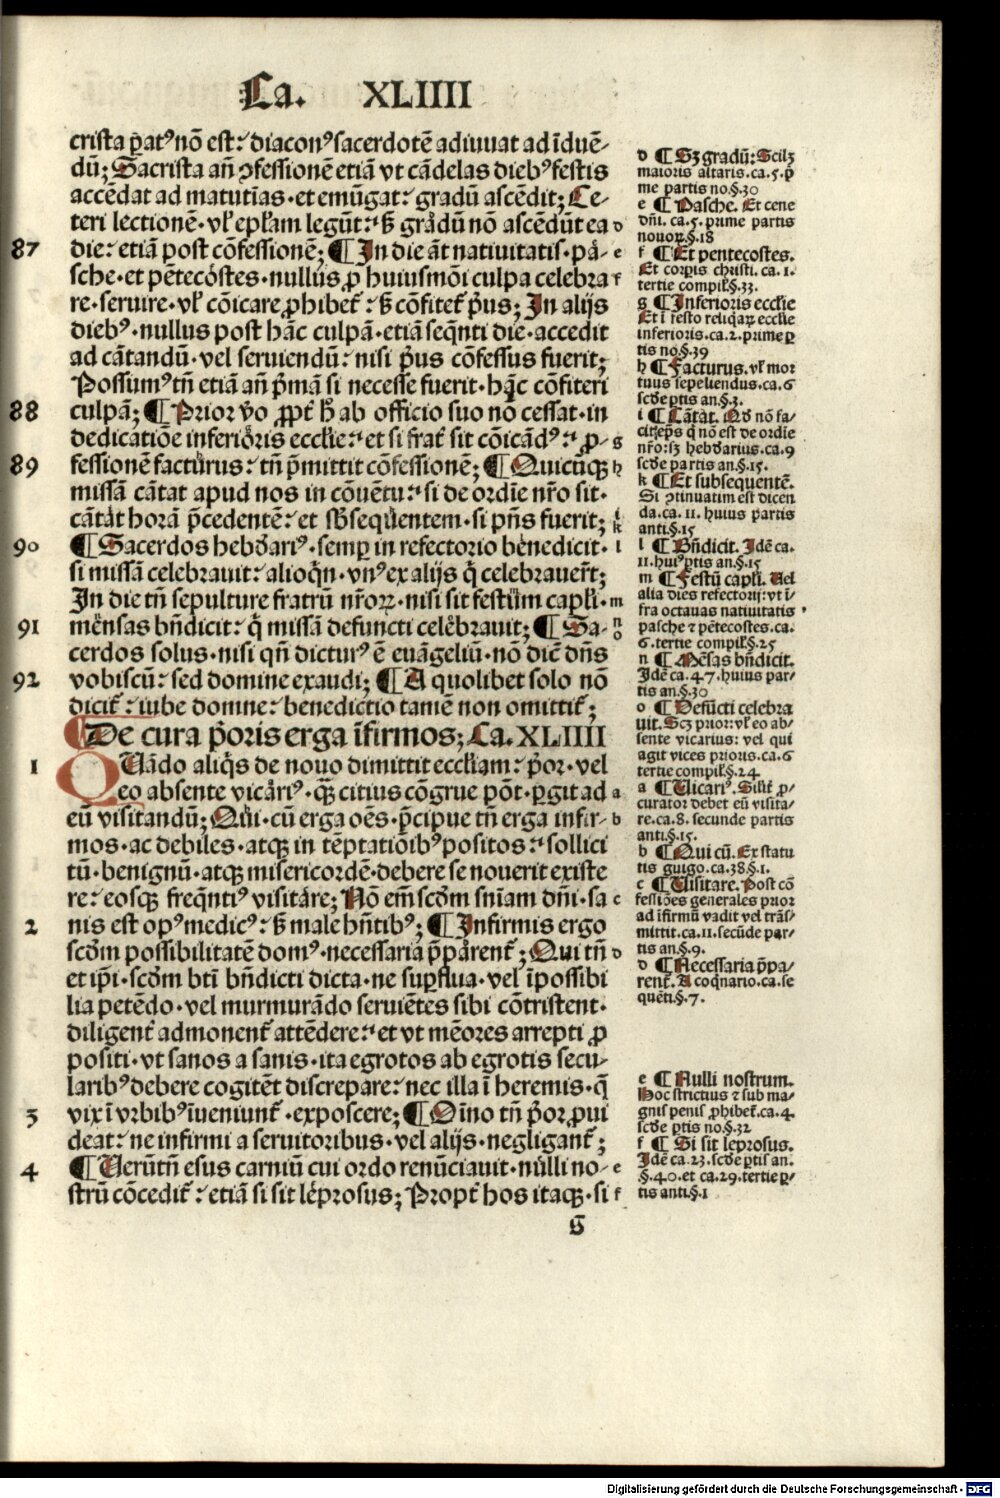 Ca. XLIIII
crista p̄atꝰ nō est: diaconꝰ sacerdotē adiuuat ad īduē-
dū; Sacrista añ ꝯfessionē etiā vt cādelas diebꝰ festis
accēdat ad matutīas · et emūgat: gradū ascēdit; Ce-
teri lectionē · vl̓ epl̓am legūt: ẜꝫ gradū nō ascēdūt ea
87 die: etiā post cōfessionē; ¶ In die añt natiuitatis · pa-
sche · et pētecostes · nullus ꝓ huiusmōi culpa celebra
re · seruire · vl̓ cōicare ꝓhibet᷑: ẜꝫ cōfitet᷑ p̓us; In alijs
diebꝰ · nullus post hāc culpā · etiā seq̄nti die · accedit
ad cātandū · vel seruiendū: nisi p̓us cōfessus fuerit;
Possumꝰ tñ etiā añ p̓mā si necesse fuerit · hāc cōfiteri
88 culpā; ¶ Prior v̓o ꝓpt̓ h̄ ab officio suo nō cessat · in
dedicatiōe inferioris eccl̓ie: et si frat̓ sit cōicādꝰ: ꝓ-
89 fessionē facturus: tñ p̓mittit cōfessionē; ¶ Quicūqꝫ
missā cātat apud nos in cōuētu: si de ordīe nr̄o sit ·
cātat horā p̄cedentē: et sb̄sequentem · si pñs fuerit;
90 ¶ Sacerdos hebd̓ariꝰ · semꝑ in refectorio benedicit ·
si missā celebrauit: alioq̓n · vnꝰ ex alijs q̓ celebrauer̄t;
In die tñ sepulture fratrū nr̄oꝝ · nisi sit festum capl̓i ·
91 mensas bñdicit: q̓ missā defuncti celebrauit; ¶ Sa-
cerdos solus · nisi qñ dicturꝰ ē euāgeliū · nō dic̄ dñs
92 vobiscū: sed domine exaudi; ¶ A quolibet solo nō
dicit᷑: iube domne: benedictio tamē non omittit᷑;
¶ De cura p̓oris erga īfirmos; Ca. XLIIII
1 QUādo aliq̓s de nouo dimittit eccl̓iam: p̓or · vel
eo absente vicariꝰ · q̄ꝫ citius cōgrue pōt · ꝑgit ad
eū visitandū; Qui · cū erga oēs · p̄cipue tñ erga infir-
mos · ac debiles · atqꝫ in tēptatiōibꝰ positos: sollici
tū · benignū · atqꝫ misericordē · debere se nouerit existe
re: eosqꝫ freq̄ntiꝰ visitare; Nō em̄ scd̓m sn̄iam dñi · sa
2 nis est opꝰ medicꝰ: ẜꝫ male hñtibꝰ; ¶ Infirmis ergo
scd̓m possibilitatē domꝰ · necessaria p̄parent᷑; Qui tñ
et ip̄i · scd̓m bt̄i bñdicti dicta · ne suꝑflua · vel īpossibi
lia petēdo · vel murmurādo seruiētes sibi cōtristent ·
diligent̓ admonent᷑ attēdere: et vt mēores arrepti ꝓ
positi · vt sanos a sanis · ita egrotos ab egrotis secu-
laribꝰ debere cogitēt discrepare: nec illa ī heremis · q̄
3 vix ī vrbibꝰ īueniunt᷑ · exposcere; ¶ Oīno tñ p̓or ꝓui
deat: ne infirmi a seruitoribus · vel alijs · negligant᷑;
4 ¶ Uerūtñ esus carniū cui ordo renūciauit · nulli no-
strū cōcedit᷑: etiā si sit leprosus; Propt̓ hos itaqꝫ · si
S
d ¶ Sꝫ gradū: Scilꝫ
maioris altaris. ca. 5. p̓
me partis no. §. 30
e ¶ Pasche. Et cene
dñi. ca. 5. prime partis
nouoꝝ. §. 18
f ¶ Et pentecostes.
Et corp̓is christi. ca. 1.
tertie compil̓. §. 33.
g ¶ Inferioris eccl̓ie
Et ī festo reliq̓aꝝ eccl̓ie
inferioris. ca. 2. prime ꝑ
tis no. §. 39
h ¶ Facturus. vl̓ mor
tuus sepeliendus. ca. 6
scd̓e ꝑtis an. §. 3.
i ¶ Cātat. Qd̓ nō fa-
cit ep̄s q̓ nō est de ordīe
nr̄o: sꝫ hebd̓arius. ca. 9
scd̓e partis an. §. 15.
k ¶ Et subsequentē.
Si ꝯtinuatim est dicen
da. ca. 11. huius partis
anti. §. 15
l ¶ Bñdicit. Idē ca.
11. huiꝰ ꝑtis an. §. 15
m ¶ Festū capl̓i. Uel
alia dies refectorij: vt ī-
fra octauas natiuitatis
pasche ⁊ pētecostes. ca.
6. tertie compil̓. §. 25
n ¶ Mēsas bñdicit.
Idē ca. 47. huius par-
tis an. §. 30
o ¶ Defūcti celebra
uit. Scꝫ prior: vl̓ eo ab-
sente vicarius: vel qui
agit vices prioris. ca. 6
tertie compil̓. §. 24
a ¶ Uicariꝰ. Silr̄ ꝓ-
curator debet eū visita-
re. ca. 8. secunde partis
anti. §. 15.
b ¶ Qui cū. Ex statu
tis guigo. ca. 38. §. 1.
c ¶ Uisitare. Post cō
fessiōes generales prior
ad īfirmū vadit vel trās-
mittit. ca. 11. secūde par-
tis an. §. 9.
d ¶ Necessaria p̄pa-
rent᷑. A coq̓nario. ca. se
quēti. §. 7.
e ¶ Nulli nostrum.
Hoc strictius ⁊ sub ma-
gnis penis ꝓhibet᷑. ca. 4.
scd̓e ꝑtis no. §. 32
f ¶ Si sit leprosus.
Idē ca. 23. scd̓e ꝑtis an.
§. 40. et ca. 29. tertie ꝑ-
tis anti. §. 1
Digitalisierung gefördert durch die Deutsche Forschungsgemeinschaft · DFG